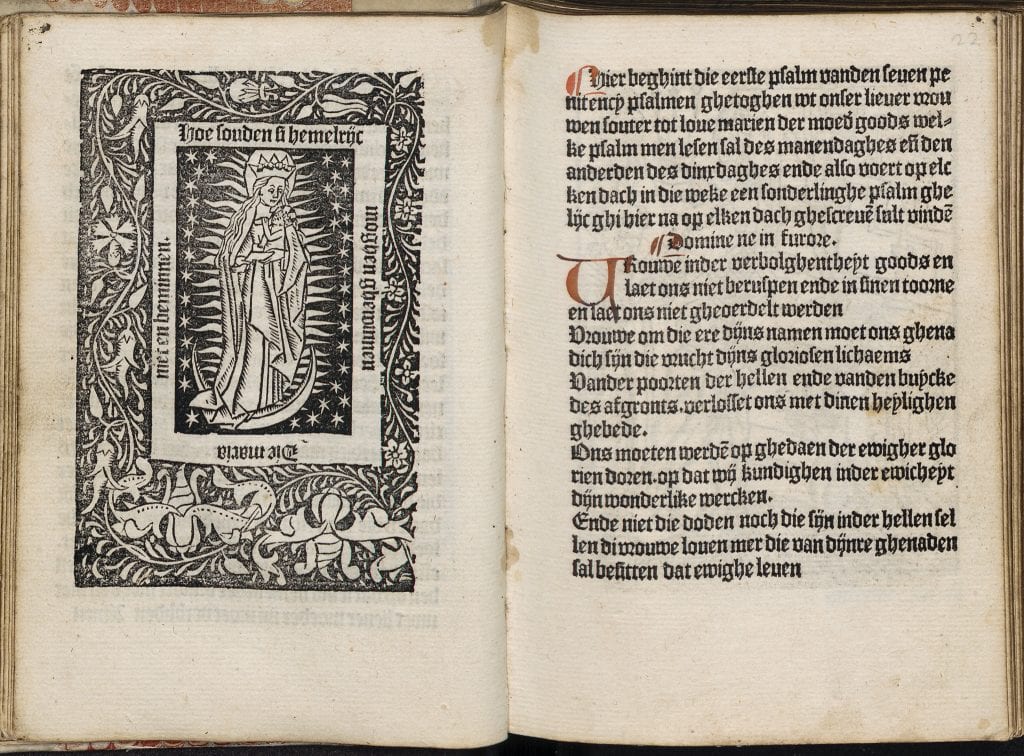 Hoe souden si hemelrijc
moghen ghewinnen
Die maria
niet en beminnen.
22
Hier beghint die eerste psalm vanden seuen pe
nitency psalmen ghetoghen wt onser lieuer vrou
wen souter tot loue marien der moed̄ goods wel-
ke psalm men lesen sal des manendaghes en̄ den
anderden des dinxdaghes ende also voert op elc
ken dach in die weke een sonderlinghe psalm ghe
lijc ghi hier na op elken dach ghescreuē sult vindē
Domine ne in furore.
VRouwe inder verbolghentheyt goods en
laet ons niet beruspen ende in sinen toorne
en laet ons niet gheoerdelt werden
Vrouwe om die ere dijns namen moet ons ghena
dich sijn die vrucht dijns gloriosen lichaems
Vander poorten der hellen ende vanden buycke
des afgronts.verlosset ons met dinen heylighen
ghebede.
Ons moeten werdē op ghedaen der ewigher glo
rien doren.op dat wij kundighen inder ewicheyt
dijn wonderlike wercken.
Ende niet die doden noch die sijn inder hellen sel
len di vrouwe louen mer die van dijnre ghenaden
sal besitten dat ewighe leuen